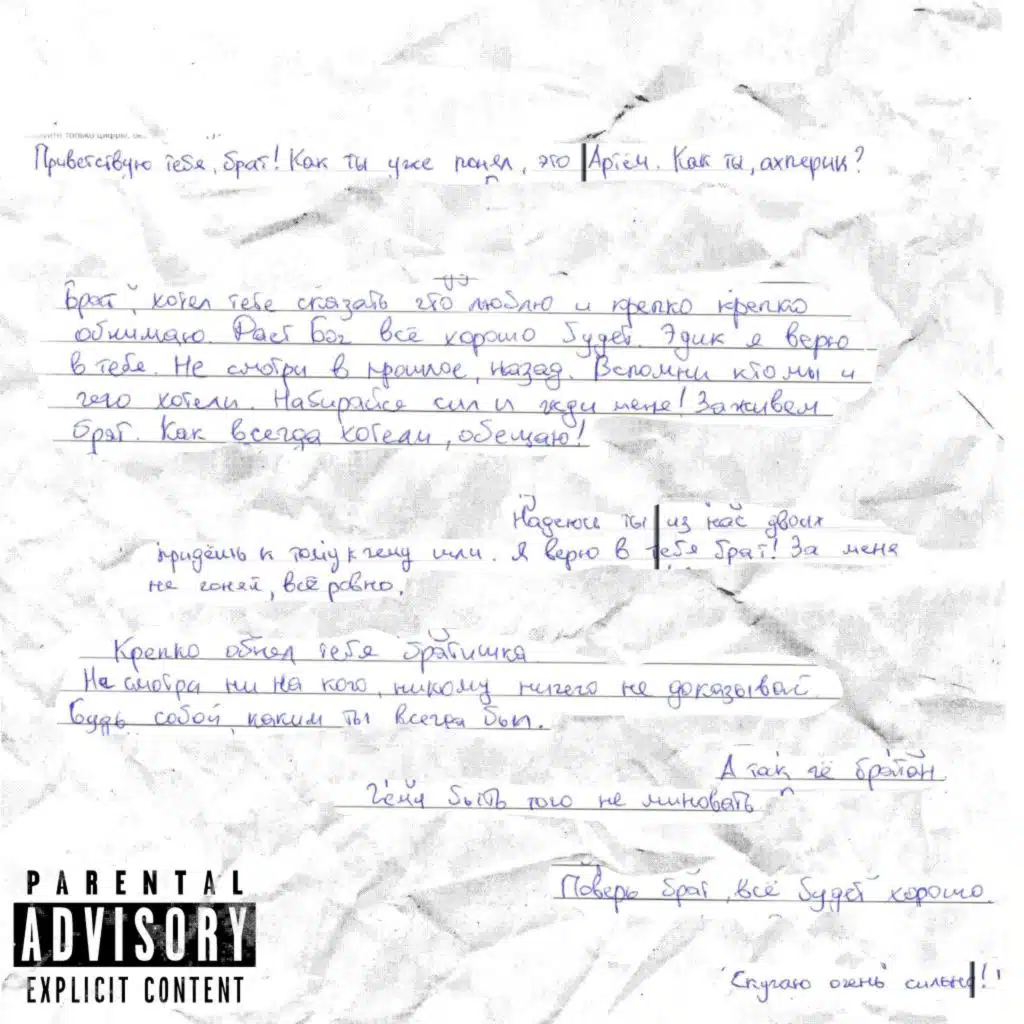 Приветствую тебя, брат! Как ты уже понял, это Артём. Как ты, ахперик?
Брат, хотел тебе сказать что люблю и крепко крепко
обнимаю. Даст Бог всё хорошо будет. Эдик я верю
в тебя. Не смотри в прошлое, назад. Вспомни кто мы и
чего хотели. Набирайся сил и жди меня! Заживём
брат. Как всегда хотели, обещаю!
Надеюсь ты из нас двоих
придёшь к тому к чему шли. Я верю в тебя брат! За меня
не гоняй, всё ровно.
Крепко обнял тебя братишка
Не смотря ни на кого, никому ничего не доказывай
Будь собой, каким ты всегда был.
А так чё братан
Чему быть того не миновать
Поверь брат, всё будет хорошо.
Скучаю очень сильно!
PARENTAL
ADVISORY
EXPLICIT CONTENT